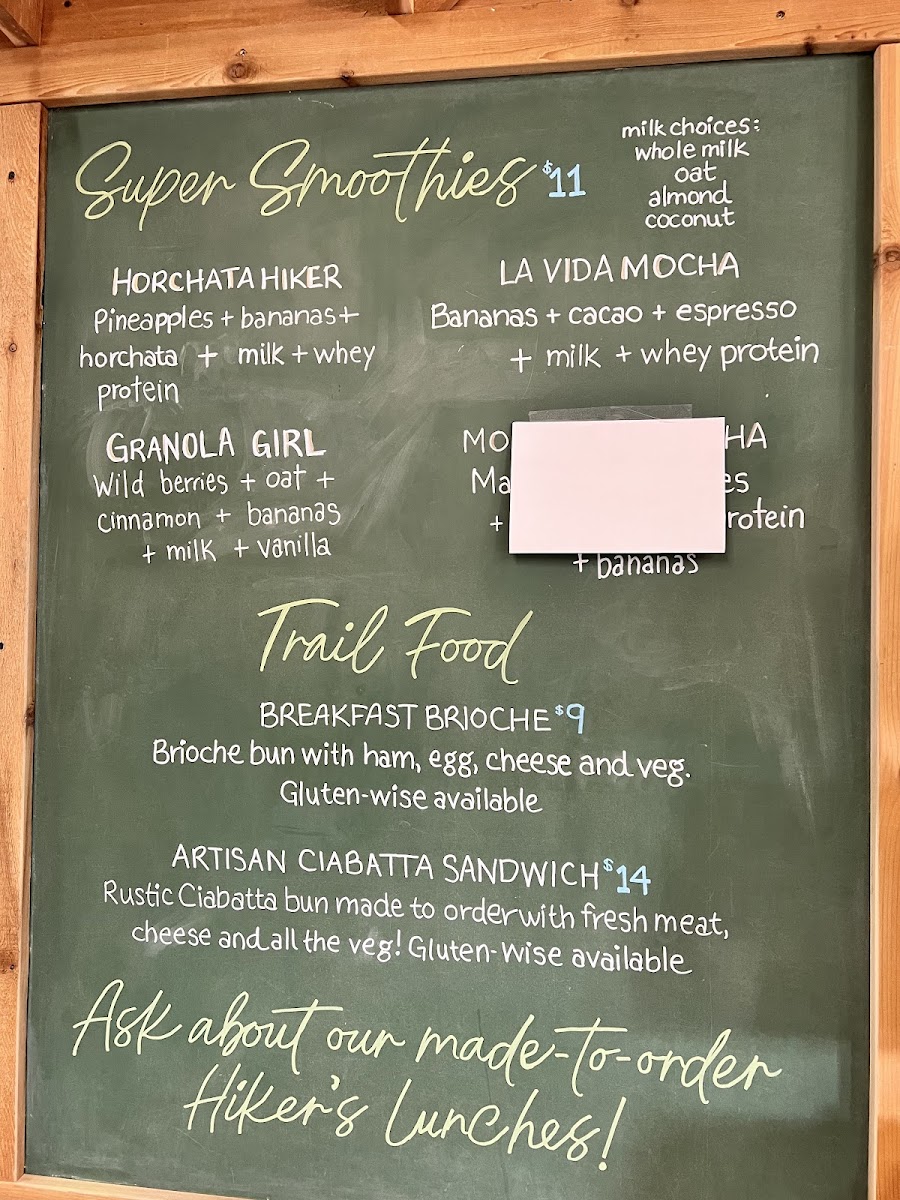 Super Smoothies $11
milk choices:
whole milk
oat
almond
coconut
HORCHATA HIKER
Pineapples + bananas +
horchata + milk + whey
protein
LA VIDA MOCHA
Bananas + cacao + espresso
+ milk + whey protein
GRANOLA GIRL
Wild berries + oat +
cinnamon + bananas
+ milk + vanilla
+
+ bananas
Trail Food
BREAKFAST BRIOCHE $9
Brioche bun with ham, egg, cheese and veg.
Gluten-wise available
ARTISAN CIABATTA SANDWICH $14
Rustic Ciabatta bun made to order with fresh meat,
cheese and all the veg! Gluten-Wise available
Ask about our made-to-order
Hiker's Lunches!